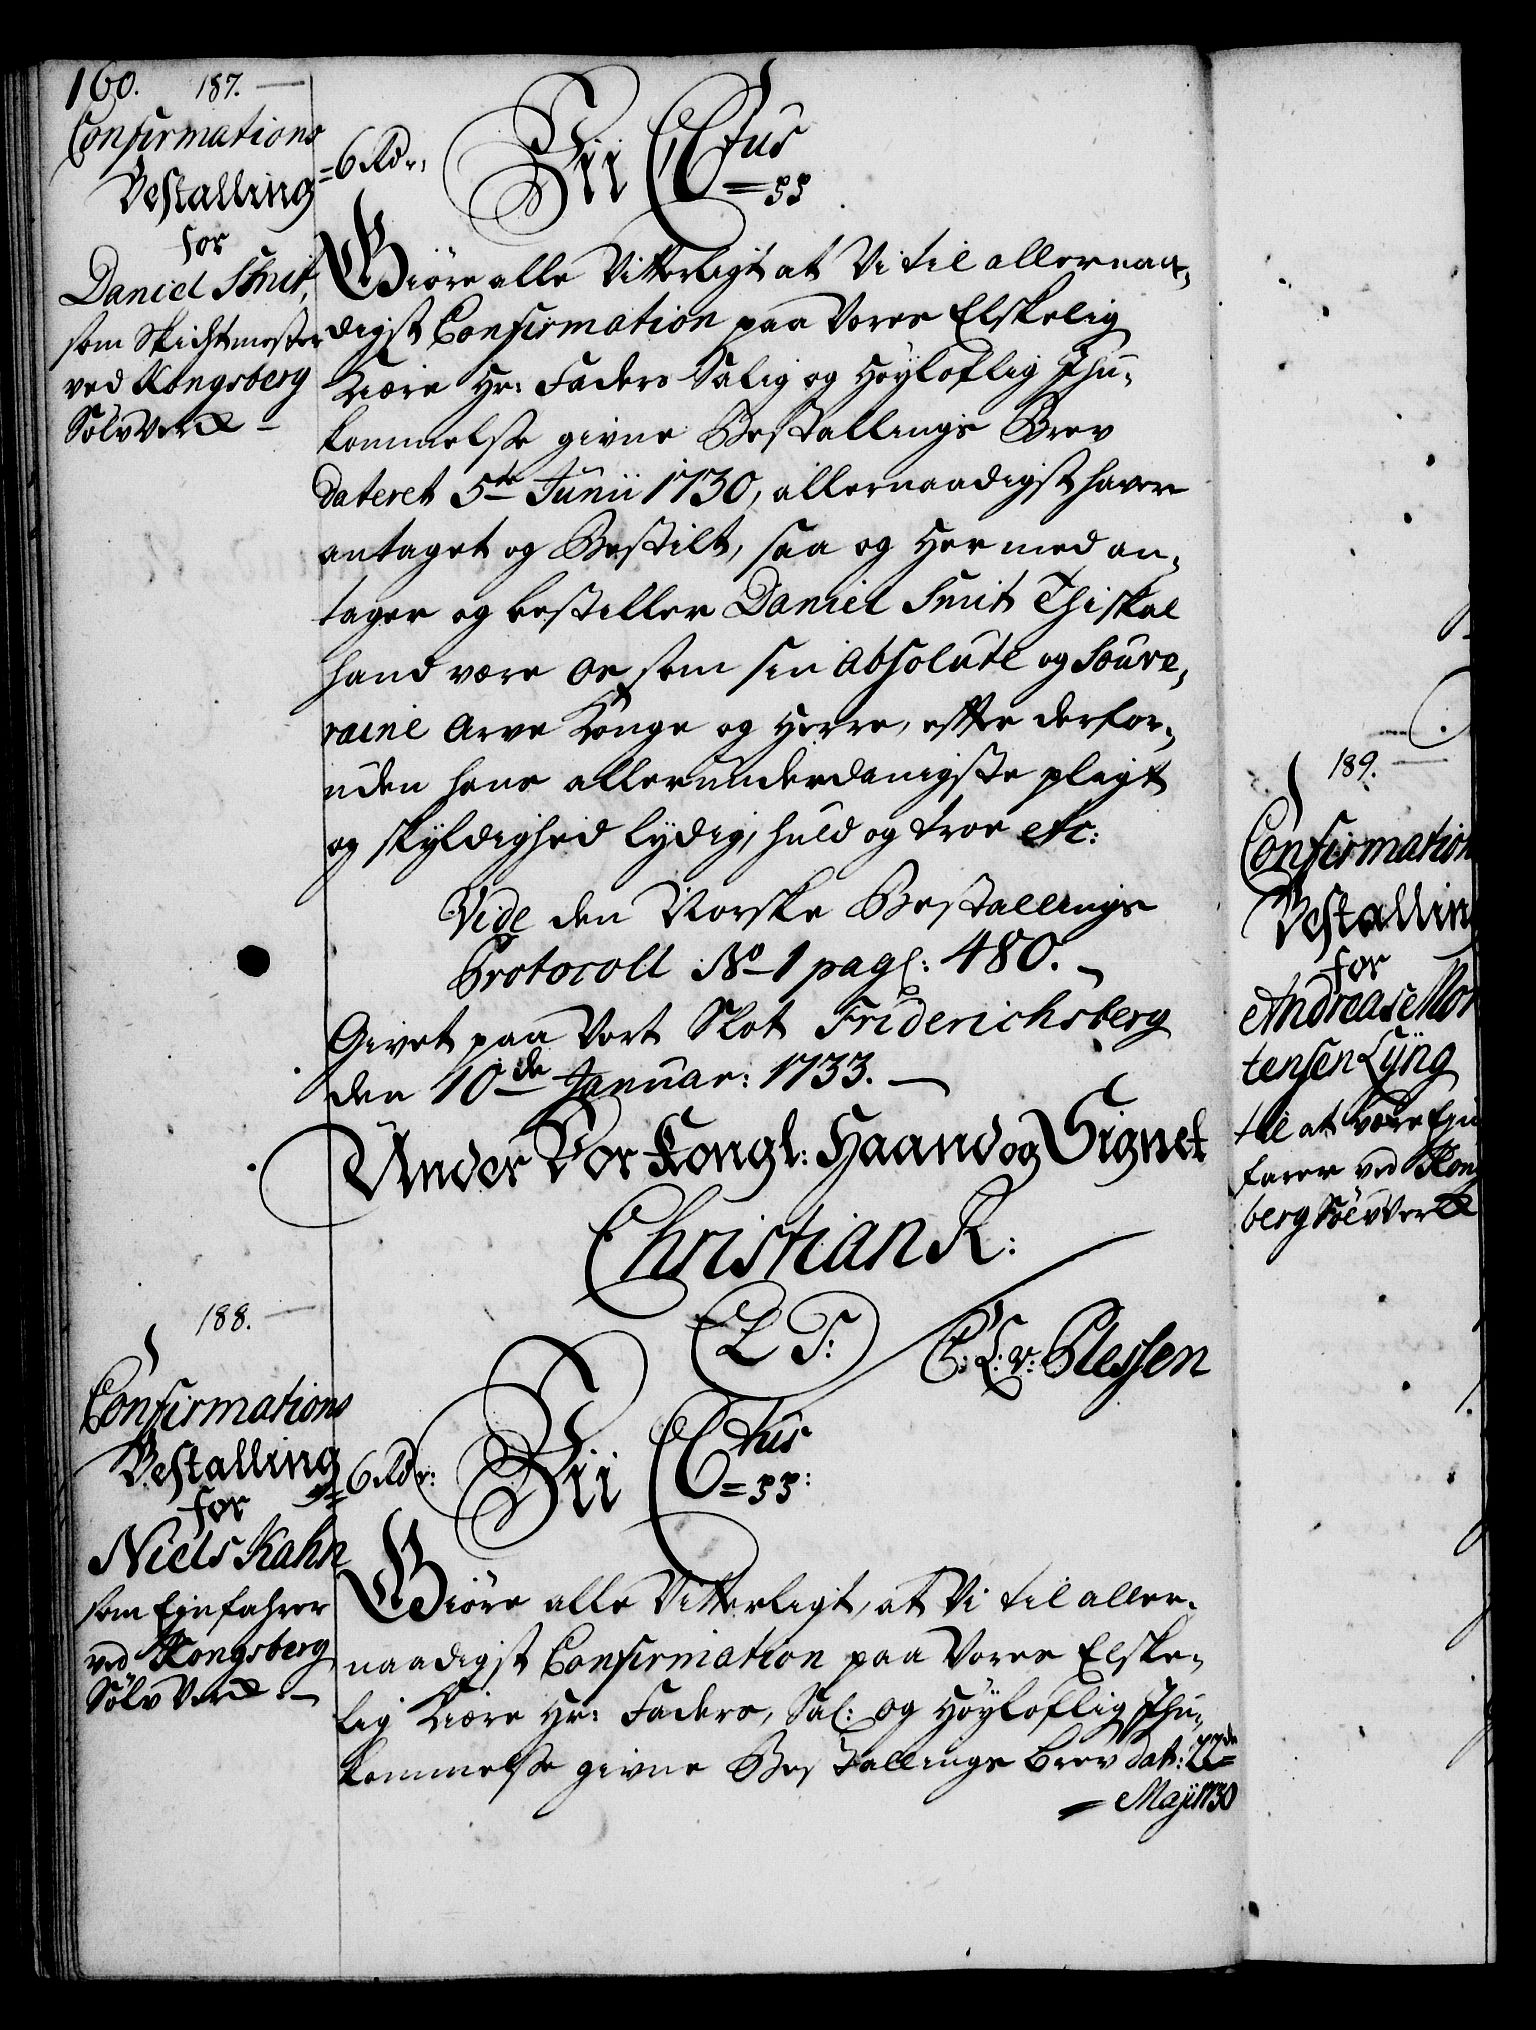 160. 187.
Confirmations
Bestalling
for
Daniel Smit,
som Skichtmester
ved Kongsberg
Sølv Verck
=6 Rdr:
Vii C 6tus
=ss
Giöre alle Vitterligt at Vi til allernaa-
digst Confirmation paa Vores Elskelig
Kiære Hr: Faders Salig og Høyloflig Ihu-
kommelse givne Bestallings Brev
dateret 5te Junii 1730, allernaadigst haver
antaget og Bestilt, saa og Hermed an-
tager og bestiller Daniel Smit Thi skal
hand være os som sin absolute og Souve-
raine Arve Konge og Herre, efter derfor-
uden hans allerunderdanigste pligt
og skyldighed lydig, huld og troe etc:
Vide den Norske Bestallings
Protocoll No 1 pag: 480.
Givet paa Vort Slot Friderichsberg
den 10de Januar: 1733.
Under Vor Kongl: Haand og Signet
Christian R:
(L S:)
C: L: v: Plessen
188.
Confirmations
Bestalling
for
Niels Kahn
som Einfahrer
ved Kongsberg
Sølv Verck
6 Rdr:
Vii C 6tus
=ss:
Giöre alle Vitterligt, at Vi til aller-
naadigst Confirmation paa Vores Elske-
lig Kiære Hr: Faders, Sal: og Høyloflig Ihu-
kommelse givne Bestallings brev dat: 22de
Maji 1730
189.
Confirmation
Bestallin
for
Andreas Mor
tensen Lÿng
til at være Ein
farer ved Kong
berg Sølv Verck